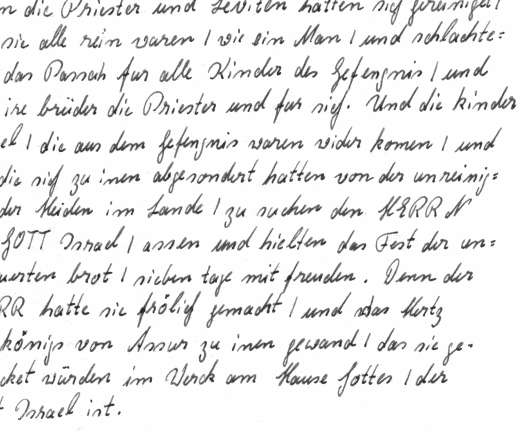 n die Priester und Leviten hatten sich gereiniget
sie alle rein waren / wie ein Man / und schlachte=
das Passah fur alle Kinder des Gefengnis / und
ire brüder die Priester und fur sich. Und die kinder
el / die aus dem Gefengnis waren wider komen / und
die sich zu inen abgesondert hatten von der unreinig=
der Heiden im Lande / zu suchen den HERRN
GOTT Israel / assen und hielten das Fest der un=
uerten brot / sieben tage mit freuden. Denn der
RR hatte sie frölich gemacht / und das Hertz
königs von Assur zu inen gewand / das sie ge-
cket würden im Werck am Hause Gottes / der
t Israel ist.